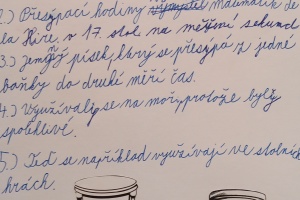 2.) Přesýpací hodiny vymyslel matematik de
la Hire v 17. stol. na měření sekund
3.) Jemný písek, který se přesýpá z jedné
baňky do druhé měří čas.
4.) Využívaly se na moři, protože byly
spolehlivé.
5.) Teď se například využívají ve stolních
hrách.